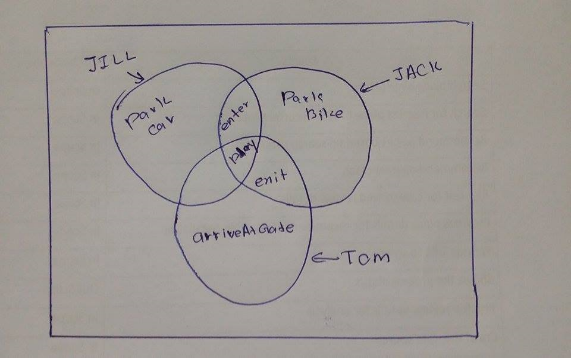 JILL
JACK
Park
car
enter
Park
Bike
play
exit
arriveAtGate
Tom